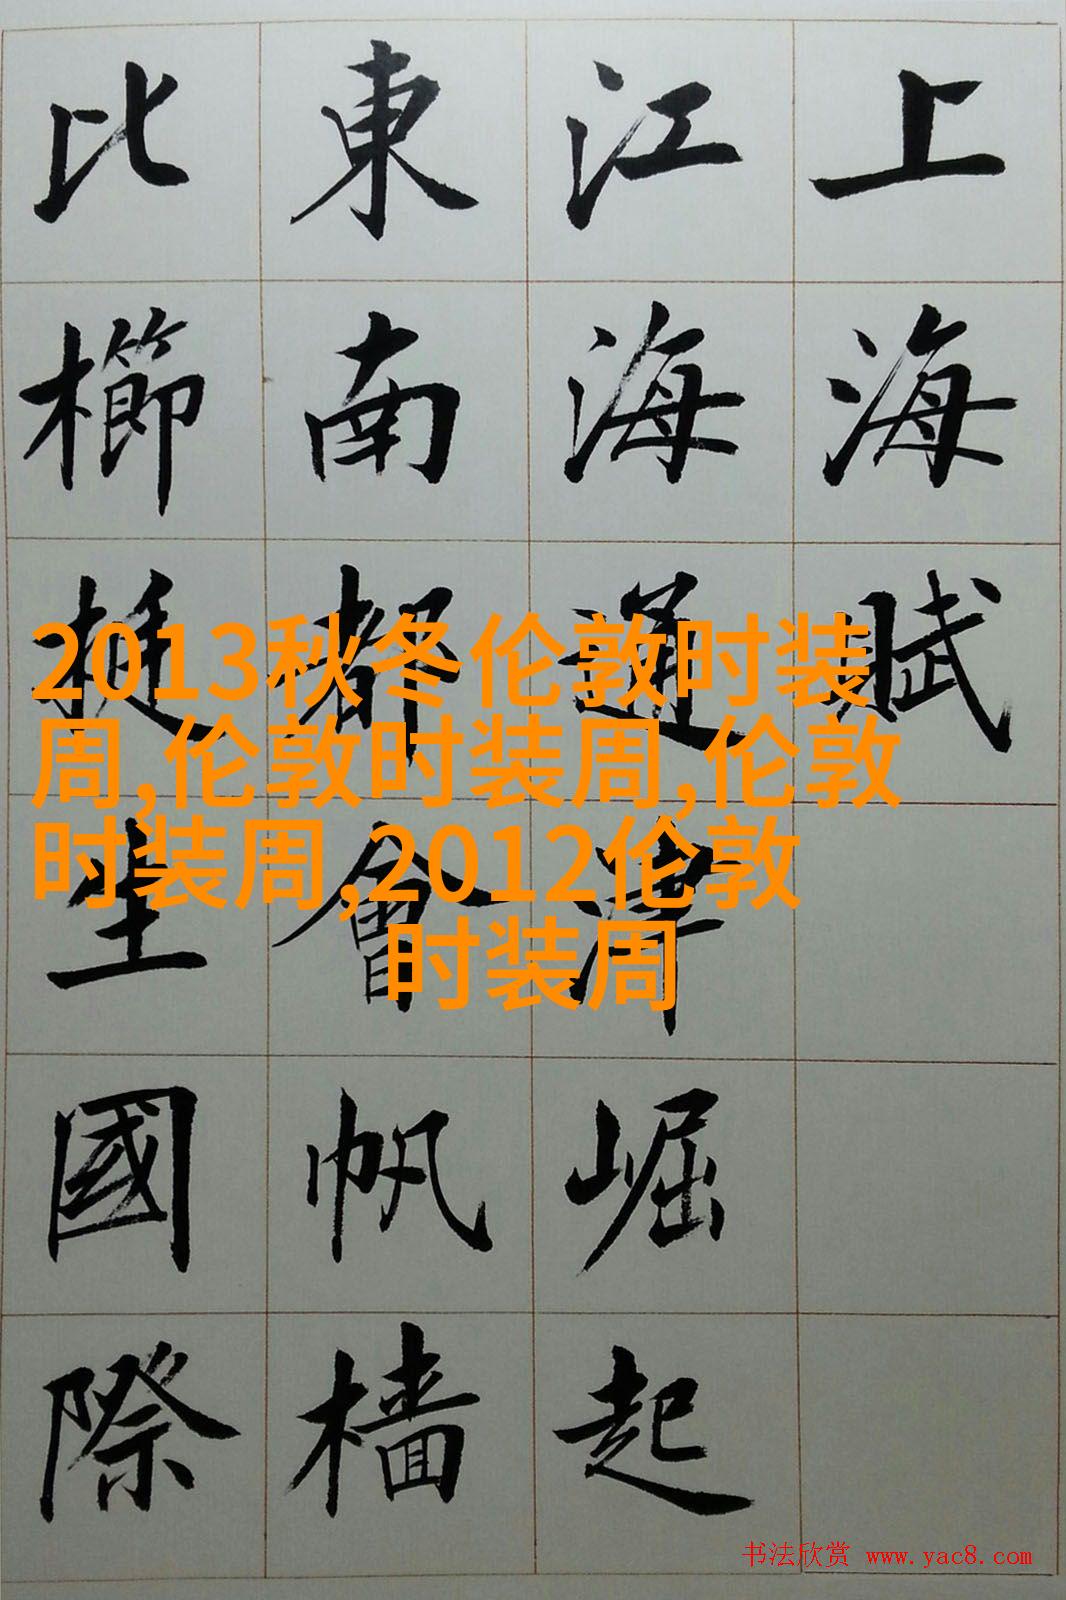 上海賦
江海通津崛起
東南都會帆檣
比櫛挺生國際
2013秋冬伦敦时装
周,伦敦时装周,伦敦
时装周,2012伦敦
时装周
书法欣赏 www.yac8.com